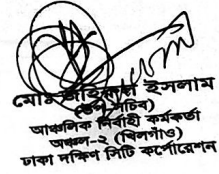 মোঃ জহিরুল ইসলাম
(উপ সচিব)
আঞ্চলিক নির্বাহী কর্মকর্তা
অঞ্চল-২ (খিলগাঁও)
ঢাকা দক্ষিণ সিটি কর্পোরেশন